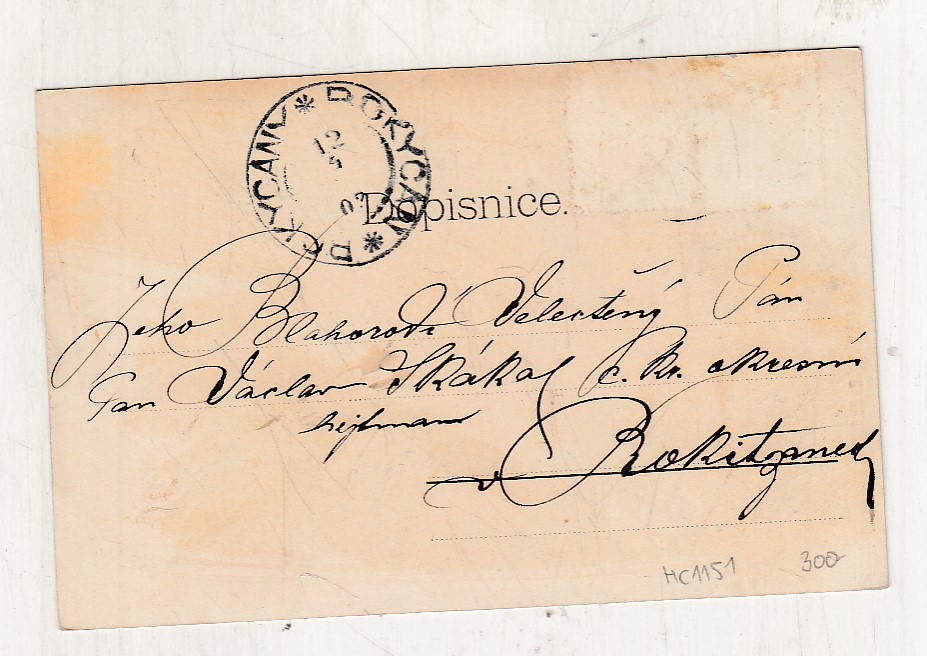 ROKYCANY * ROKYCANY *
12
5
02
Dopisnice.
Jeho Blahorodí Velectěný Pán
Pan Václav Skákal c. kr. okresní
hejtman
v Rokitzanech
HC1151 300